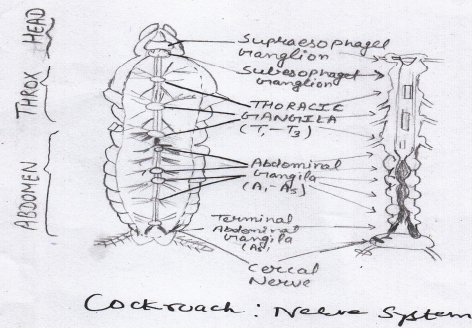 HEAD
THROX
ABDOMEN
Supraesophagel
Ganglion
Subesophagel
Ganglion
THORACIC
GANGILA
(T1-T3)
Abdominal
Gangila
(A1-A5)
Terminal
Abdominal
Gangila
(A6)
Cercal
Nerve
Cockroach : Nerve System